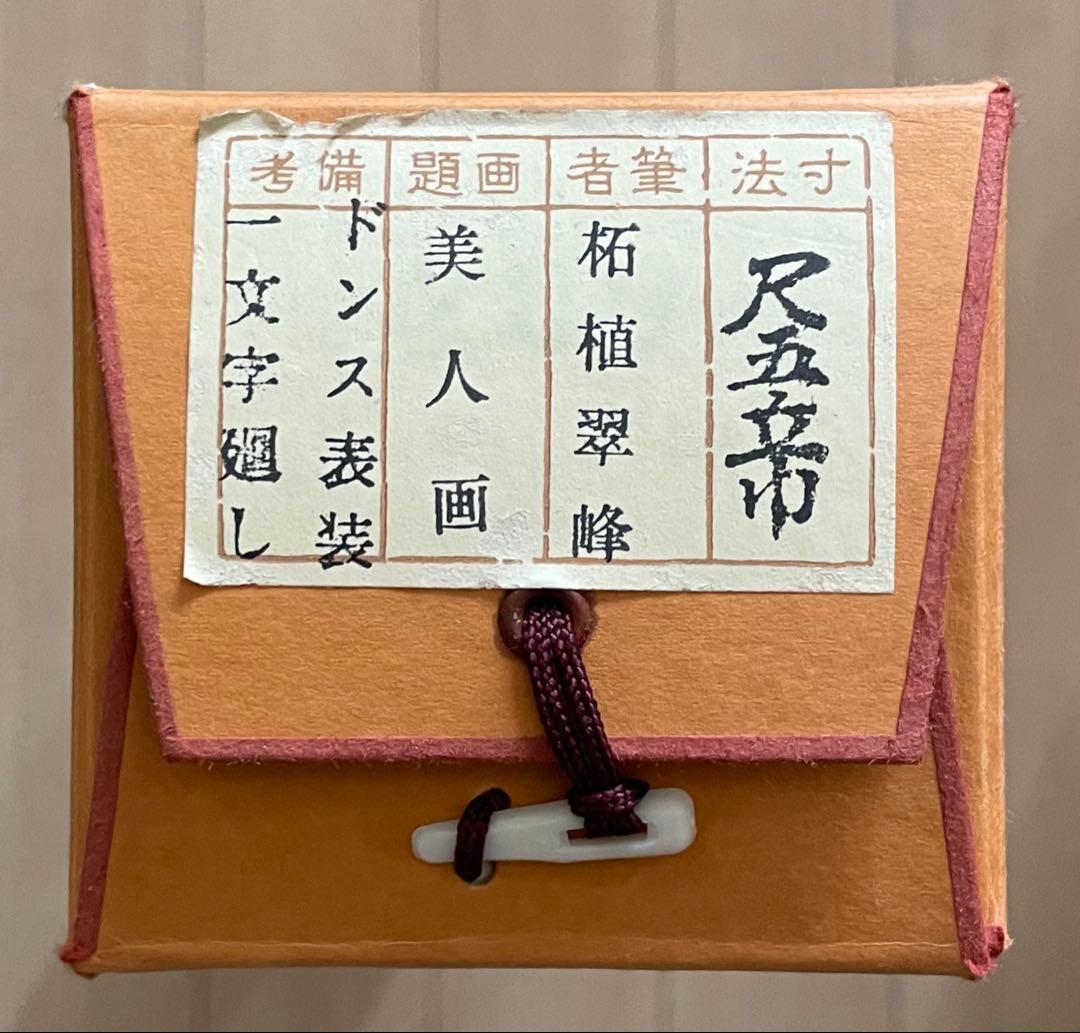 寸法
尺五
筆者
柘植翠峰
画題
美人画
備考
ドンス表装
一文字廻し